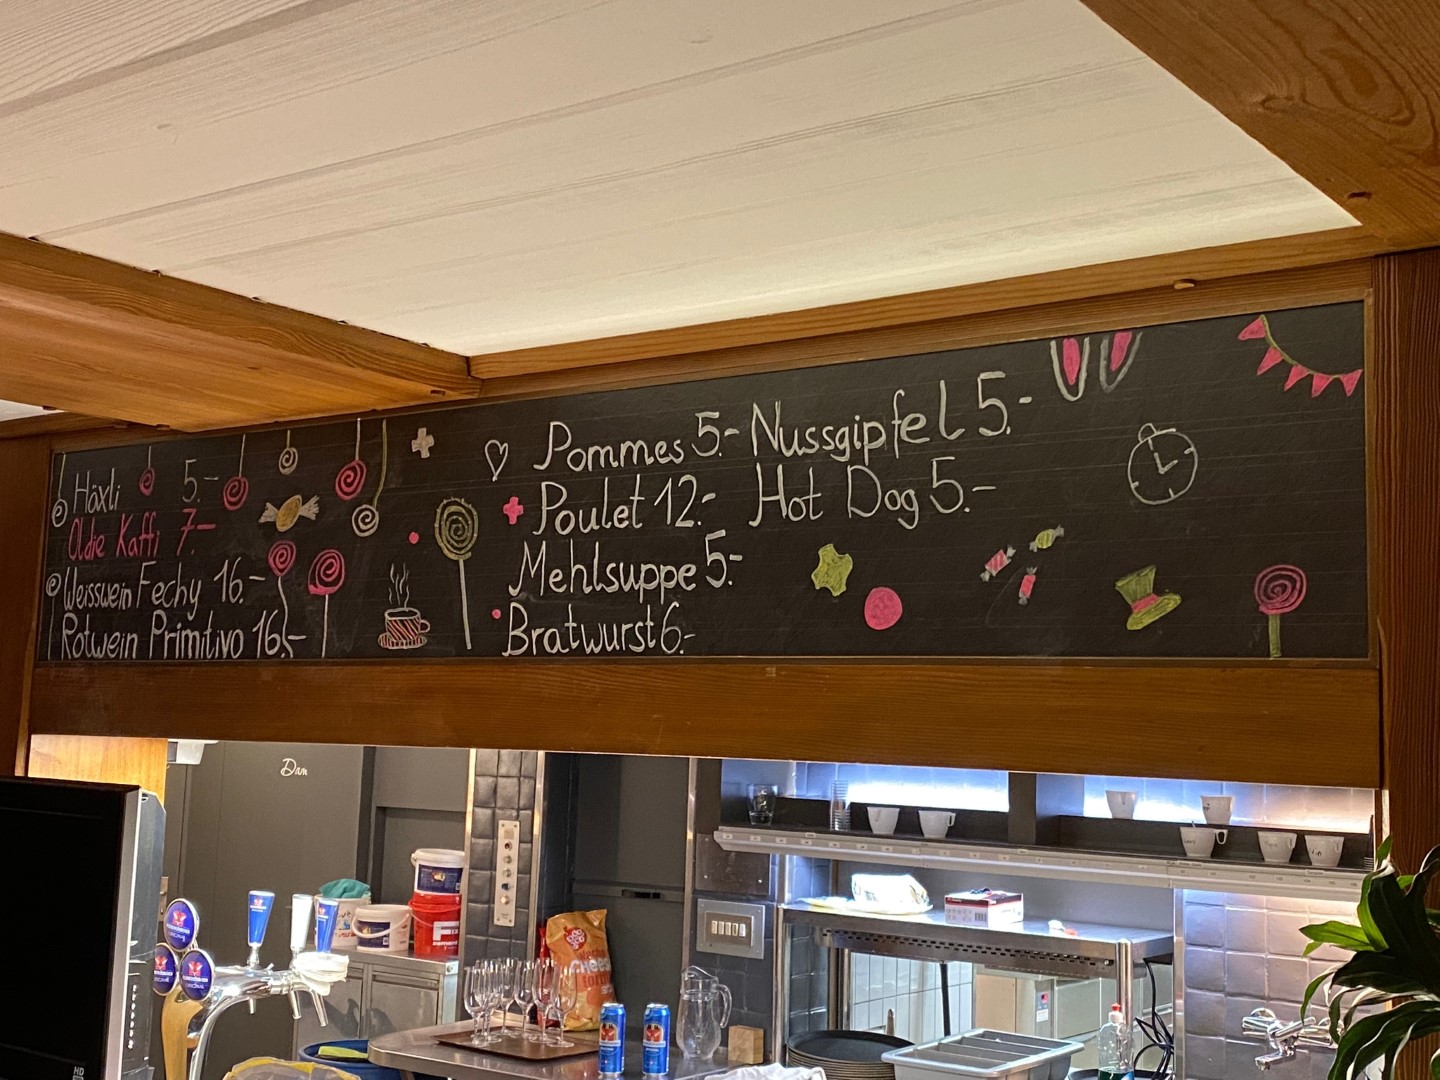 Höxli 5.-
Oldie Kaffi 7.-
Weisswein Fechy 16.-
Rotwein Primitivo 16.-
Pommes 5.- Nussgipfel 5.-
Poulet 12.- Hot Dog 5.-
Mehlsuppe 5.-
Bratwurst 6.-
Dam
HD